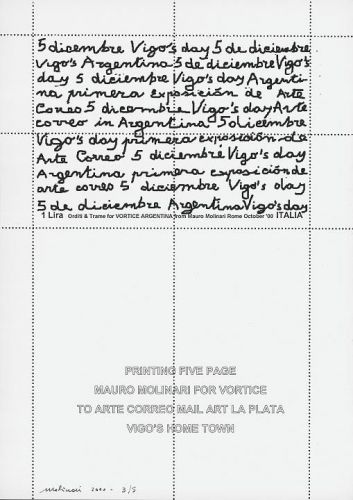 5 dicembre Vigo's day 5 de diciembre
Vigo's Argentina 5 de diciembre Vigo's
day 5 diciembre Vigo's day Argenti
na primera exposición de Arte
Correo 5 dicembre Vigo's day Arte
correo in Argentina 5 diciembre
Vigo's day primera exposición de
Arte Correo 5 diciembre Vigo's day
Argentina primera exposición de
arte correo 5 diciembre Vigo's day
5 de diciembre Argentina Vigo's day
1 Lira Orditi & Trame for VORTICE ARGENTINA from Mauro Molinari Rome October '00 ITALIA
PRINTING FIVE PAGE
MAURO MOLINARI FOR VORTICE
TO ARTE CORREO MAIL ART LA PLATA
VIGO'S HOME TOWN
Molinari 2000 - 3/5